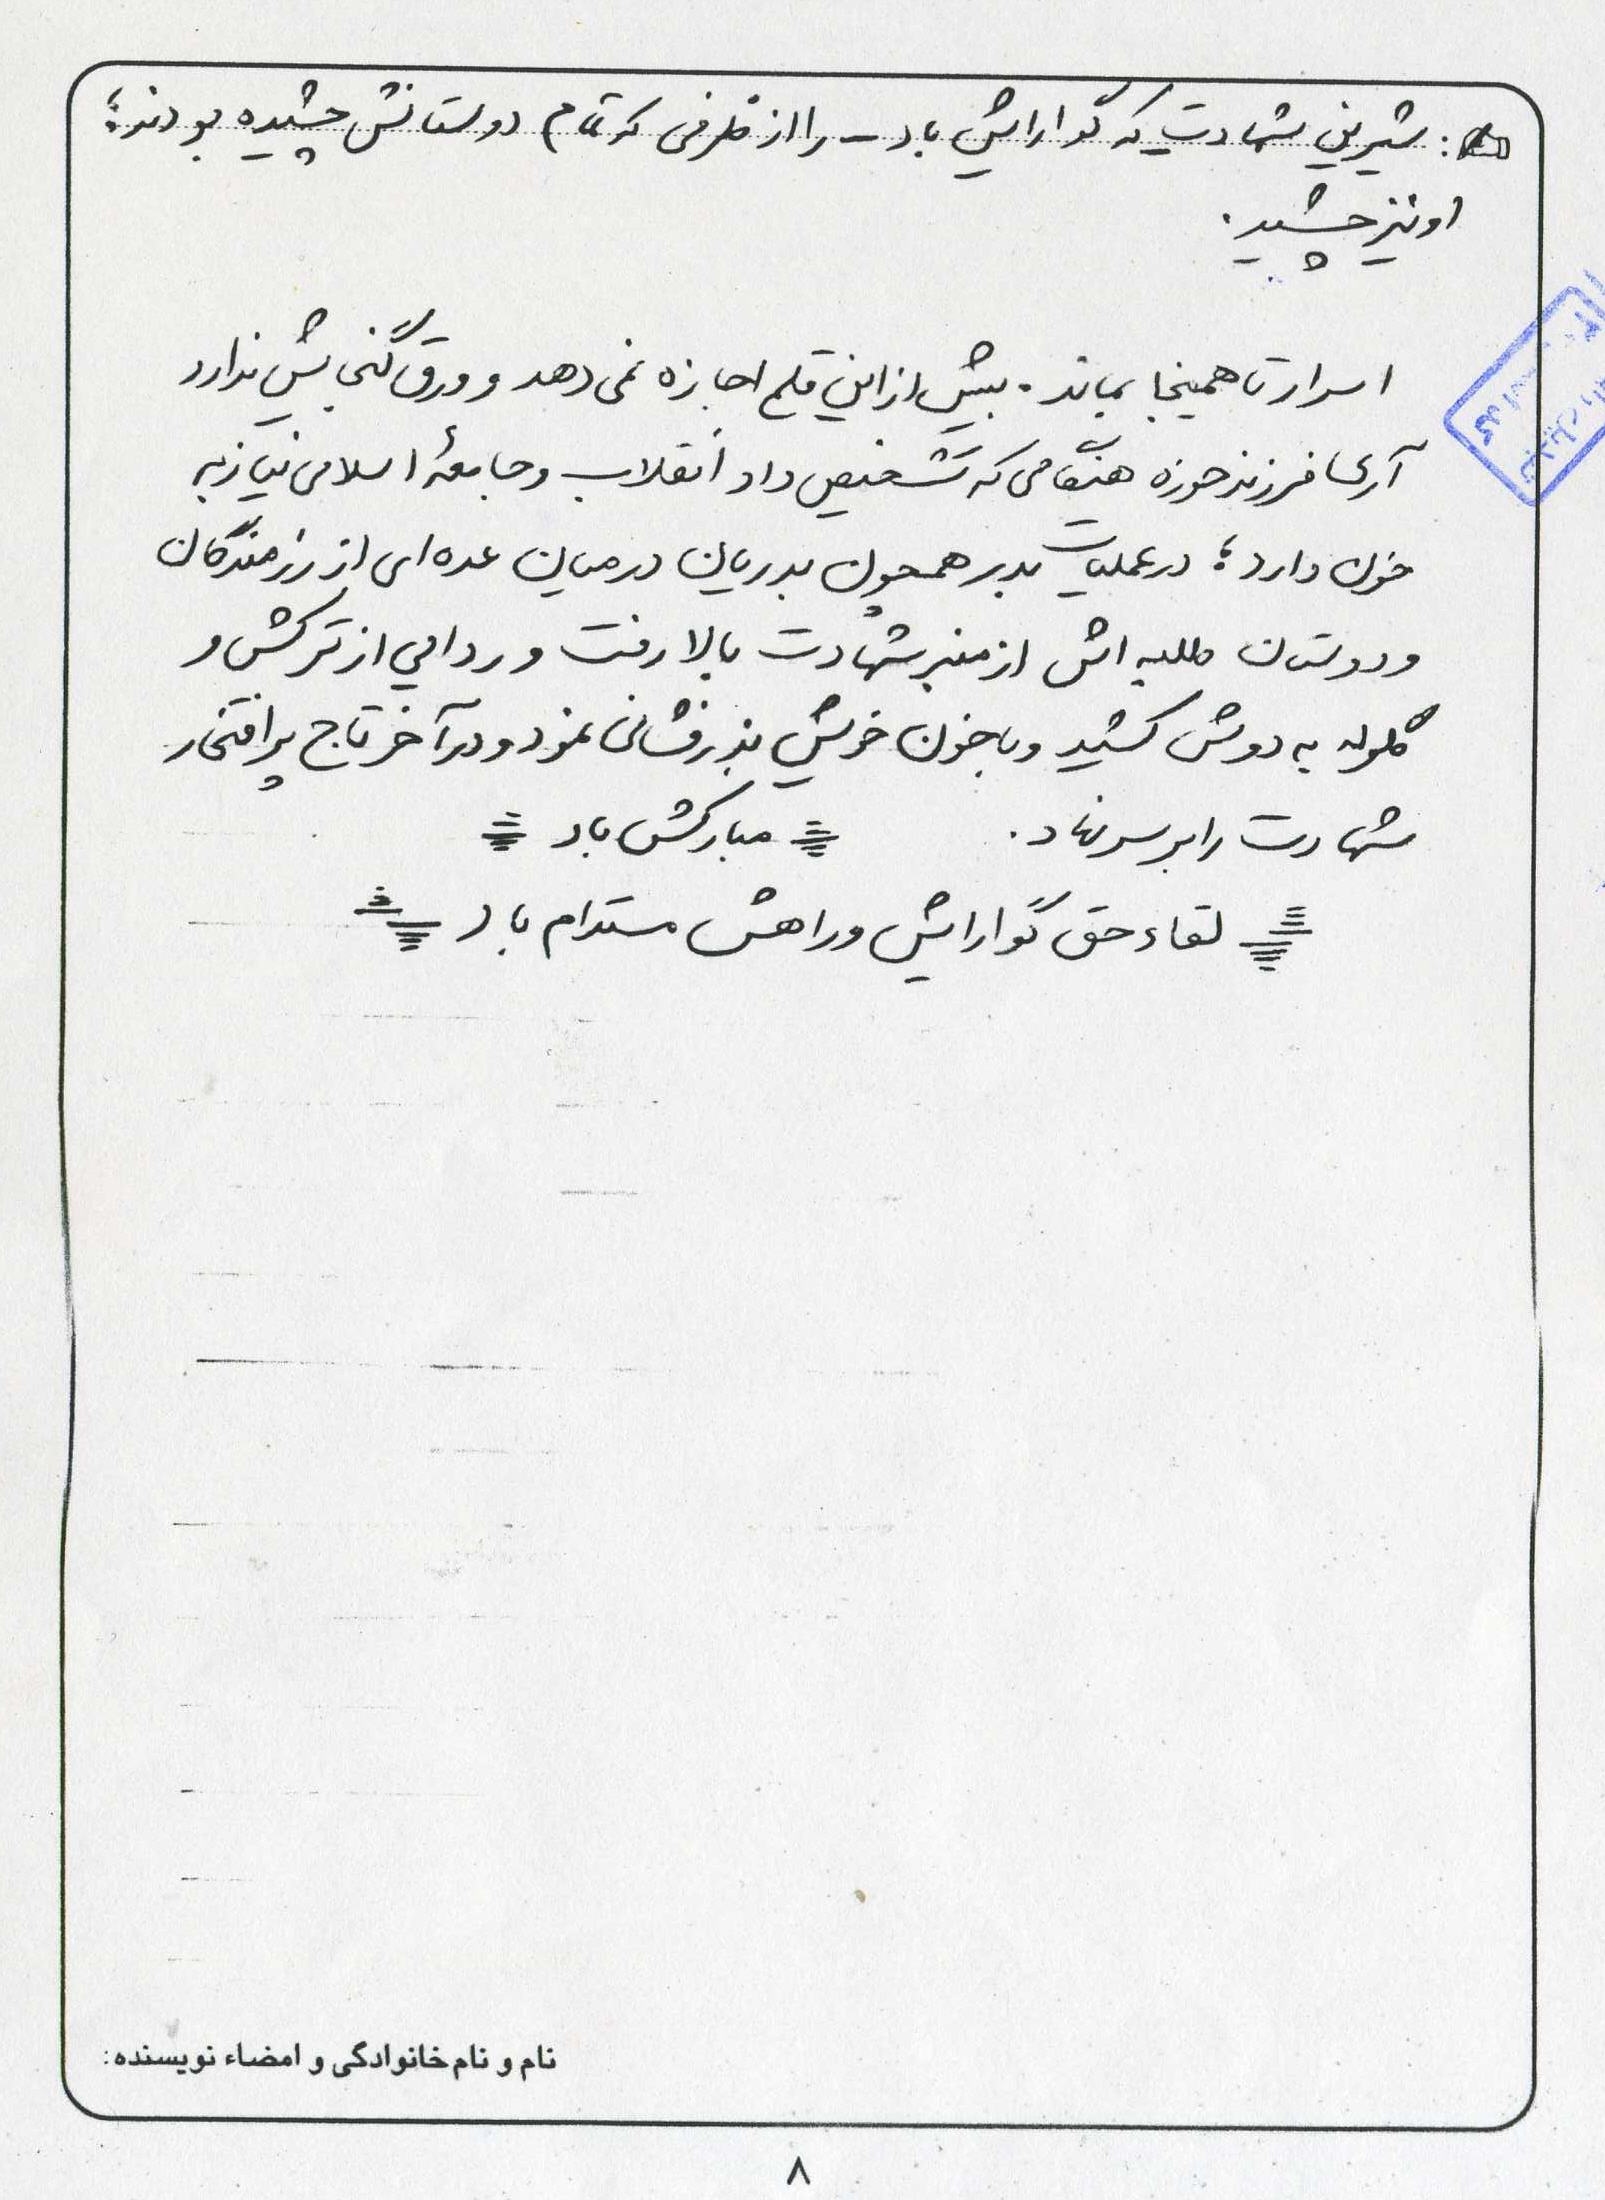 : شیرینی شهادت که گوارایش باد – را از ظرفی که تمام دوستانش چشیده بودند؛
او نیز چشید.
اسرار تا همینجا بماند. بیش از این قلم اجازه نمی دهد و ورق گنجایش ندارد
آری فرزند حوزه هنگامی که تشخیص داد انقلاب و جامعهٔ اسلامی نیاز به
خون دارد؛ در عملیات بدر همچون بدریان در میان عده ای از رزمندگان
و دوستان طلبه اش از منبر شهادت بالا رفت و ردایی از ترکش و
گلوله به دوش کشید و با خون خویش بذرفشانی نمود و در آخر تاج پرافتخار
شهادت را بر سر نهاد. مبارکش باد
لقاء حق گوارایش و راهش مستدام باد
نام و نام خانوادگی و امضاء نویسنده:
۸